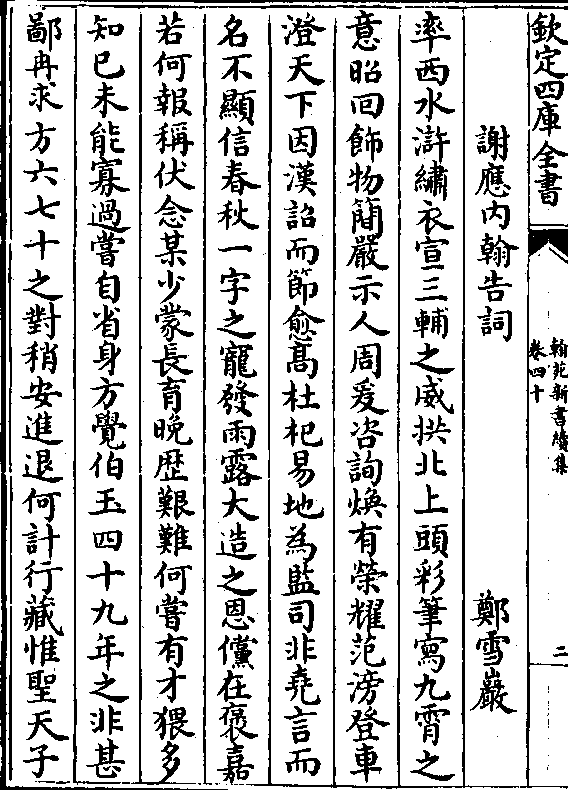 欽定四庫全書
翰苑新書續集
卷四十
二
謝應内翰告詞
鄭雪巖
率西水滸繡衣宣三輔之威拱北上頭彩筆寫九霄之
意昭回飾物簡嚴示人周爰咨詢煥有榮耀范滂登車
澄天下因漢詔而節愈髙杜杞易地為監司非堯言而
名不顯信春秋一字之寵發雨露大造之恩儻在褒嘉
若何報稱伏念某少蒙長育晚歴艱難何嘗有才猥多
知已未能寡過嘗自省身方覺伯玉四十九年之非甚
鄙冉求方六七十之對稍安進退何計行藏惟聖天子